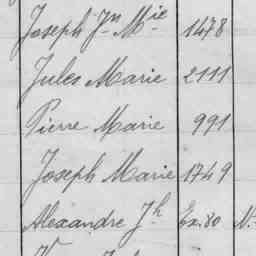 Joseph Jn Mie 1478
Jules Marie 2111
Pierre Marie 991
Joseph Marie 1749
Alexandre Jh Ex.80 N.